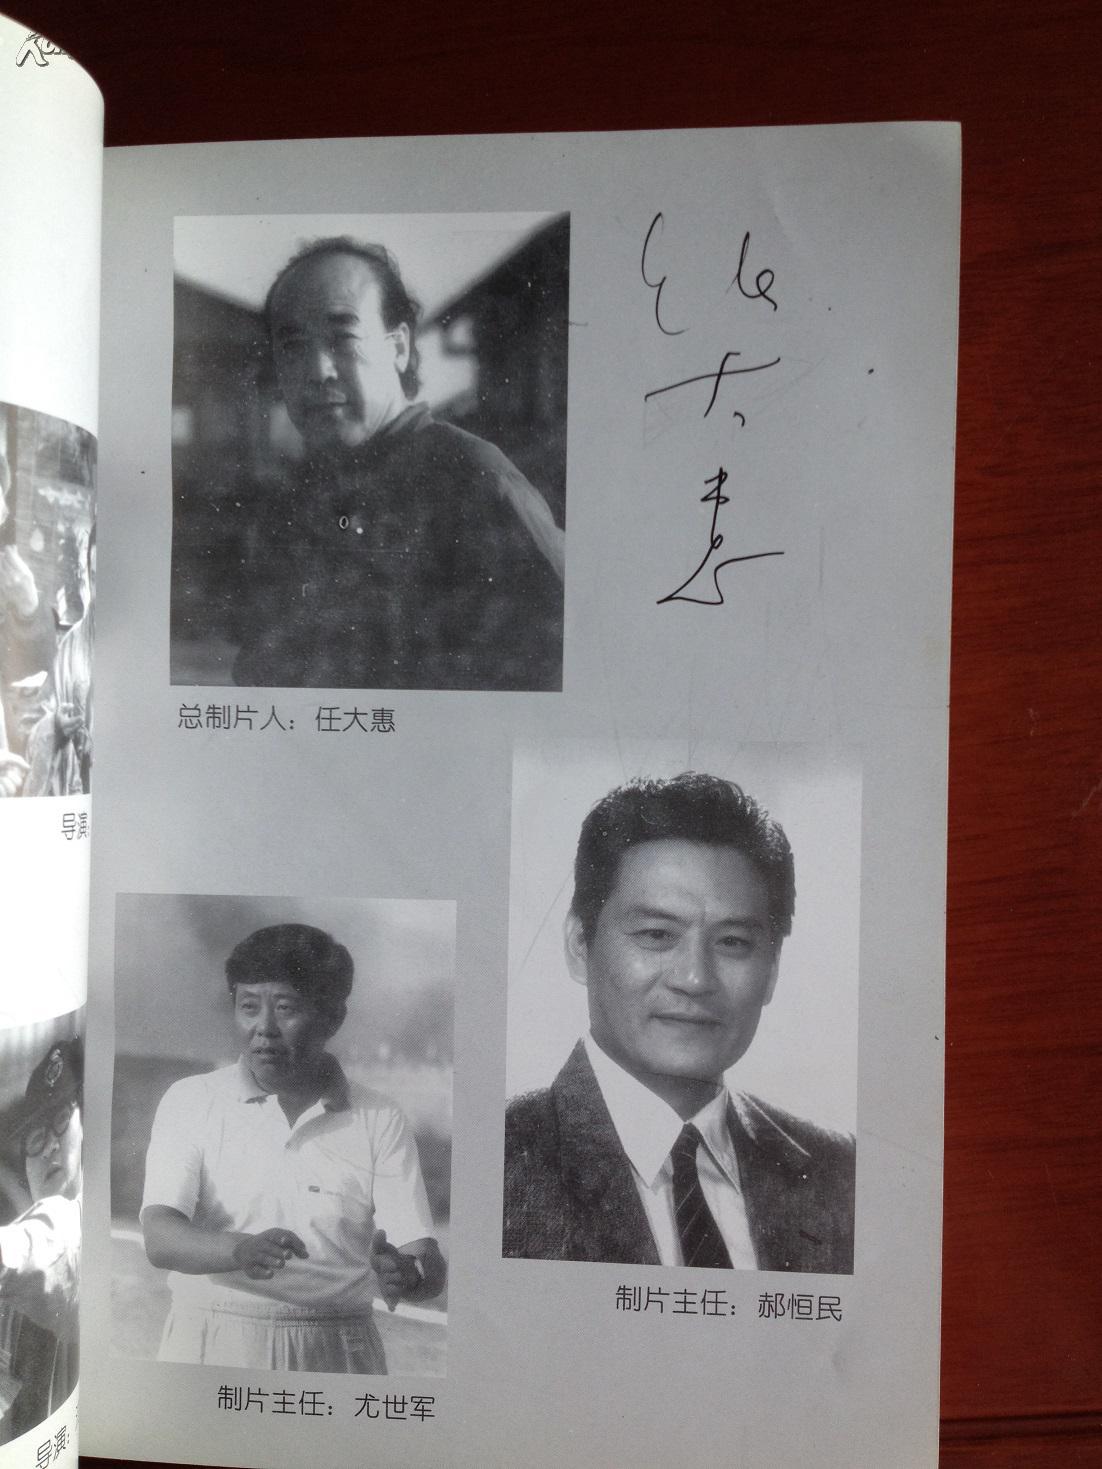 任大惠
总制片人：任大惠
制片主任：郝恒民
制片主任：尤世军
导演：
导演：